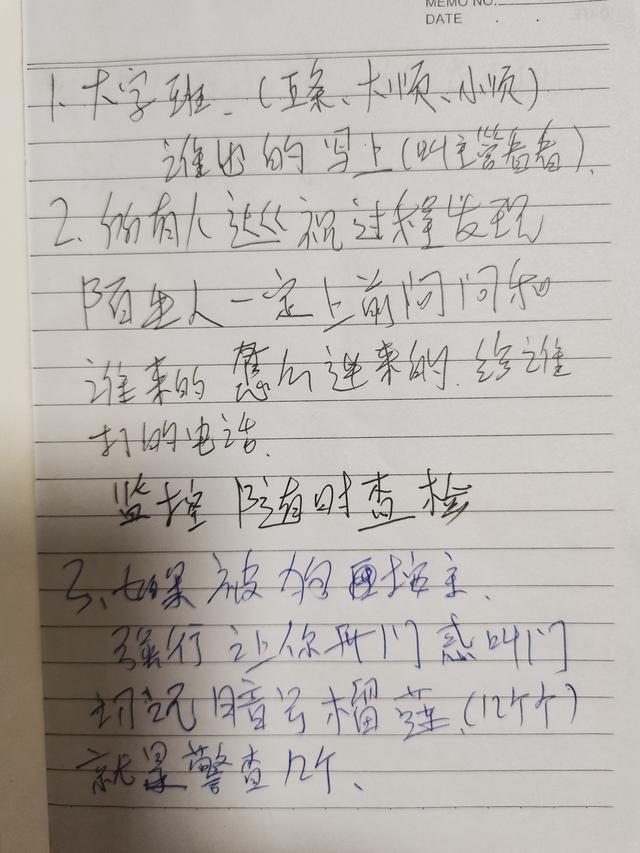 MEMO NO.
DATE . .
1、大字班.(五条、大顺、小顺)
谁出的写上(叫主营者看).
2.所有人这巡视过程发现
陌生人一定上前问问和
谁来的 怎么进来的.给谁
打的电话.
监控随时查检
3、如果被狗控主.
强行让你开门惑叫门
切记暗号榴莲.(12个个)
就是警查几个、